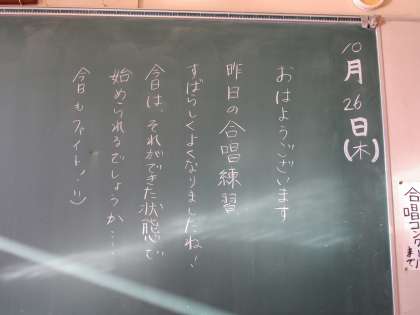 10月26日(木)
おはようございます
昨日の合唱練習
すばらしくよくなりましたね!
今日は、それができた状態で
始められるでしょうか…
今日もファイト!!
合唱コンクール
まで